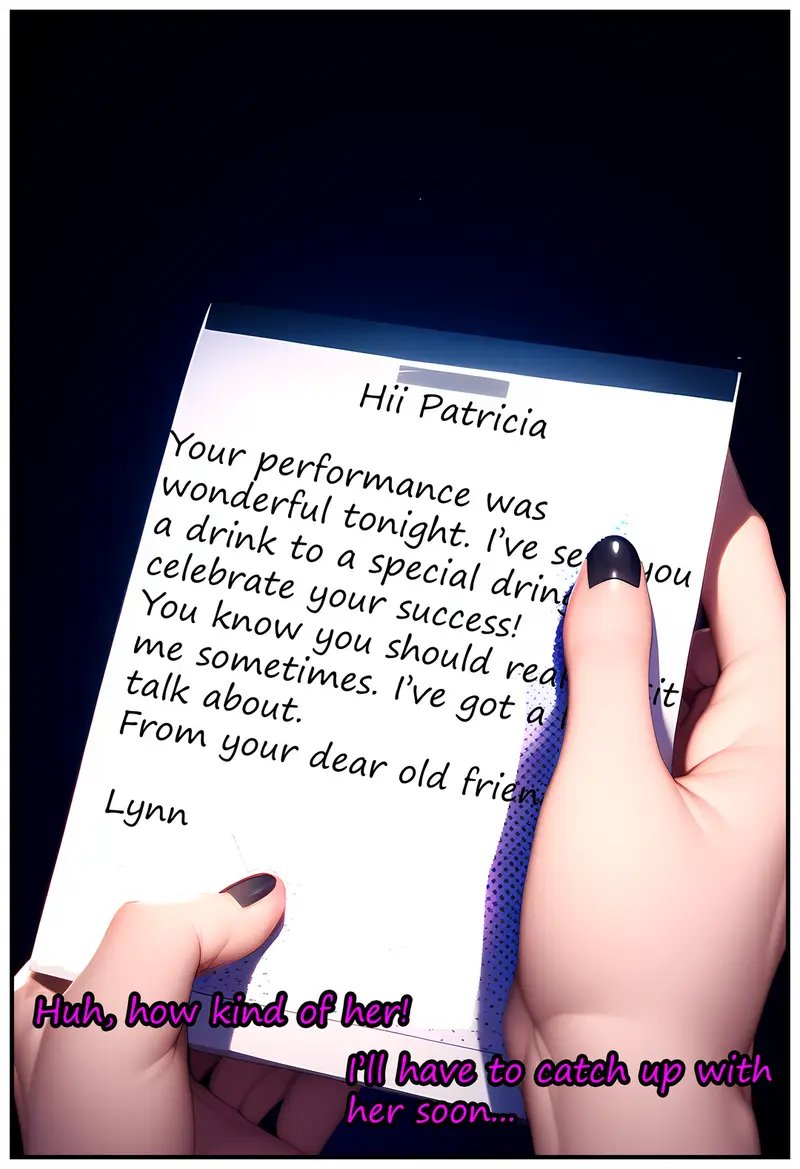 Hii Patricia
Your performance was
wonderful tonight. I've you
a drink to a special
celebrate your success!
You know you should
me sometimes. I've got a
talk about.
From your dear old
Lynn
Huh, how kind of her!
I'll have to catch up with
her soon...